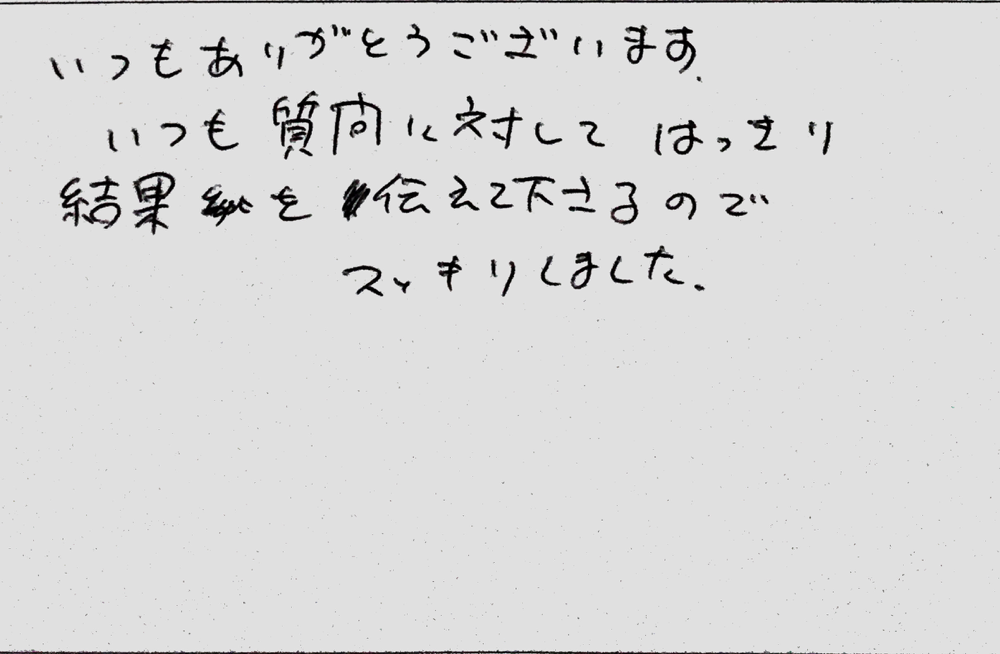 いつもありがとうございます.
いつも質問に対して はっきり
結果を伝えて下さるので
スッキリしました.